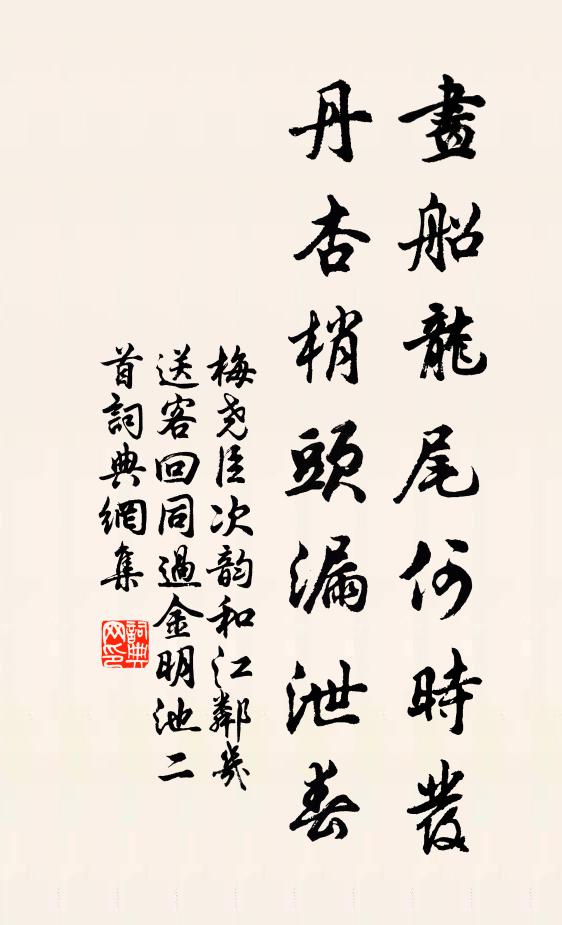 畫船龍尾何時發
丹杏梢頭漏泄春
梅堯臣次韵和江鄰幾
送客回同過金明池二
首詞典網集
詞典
网印